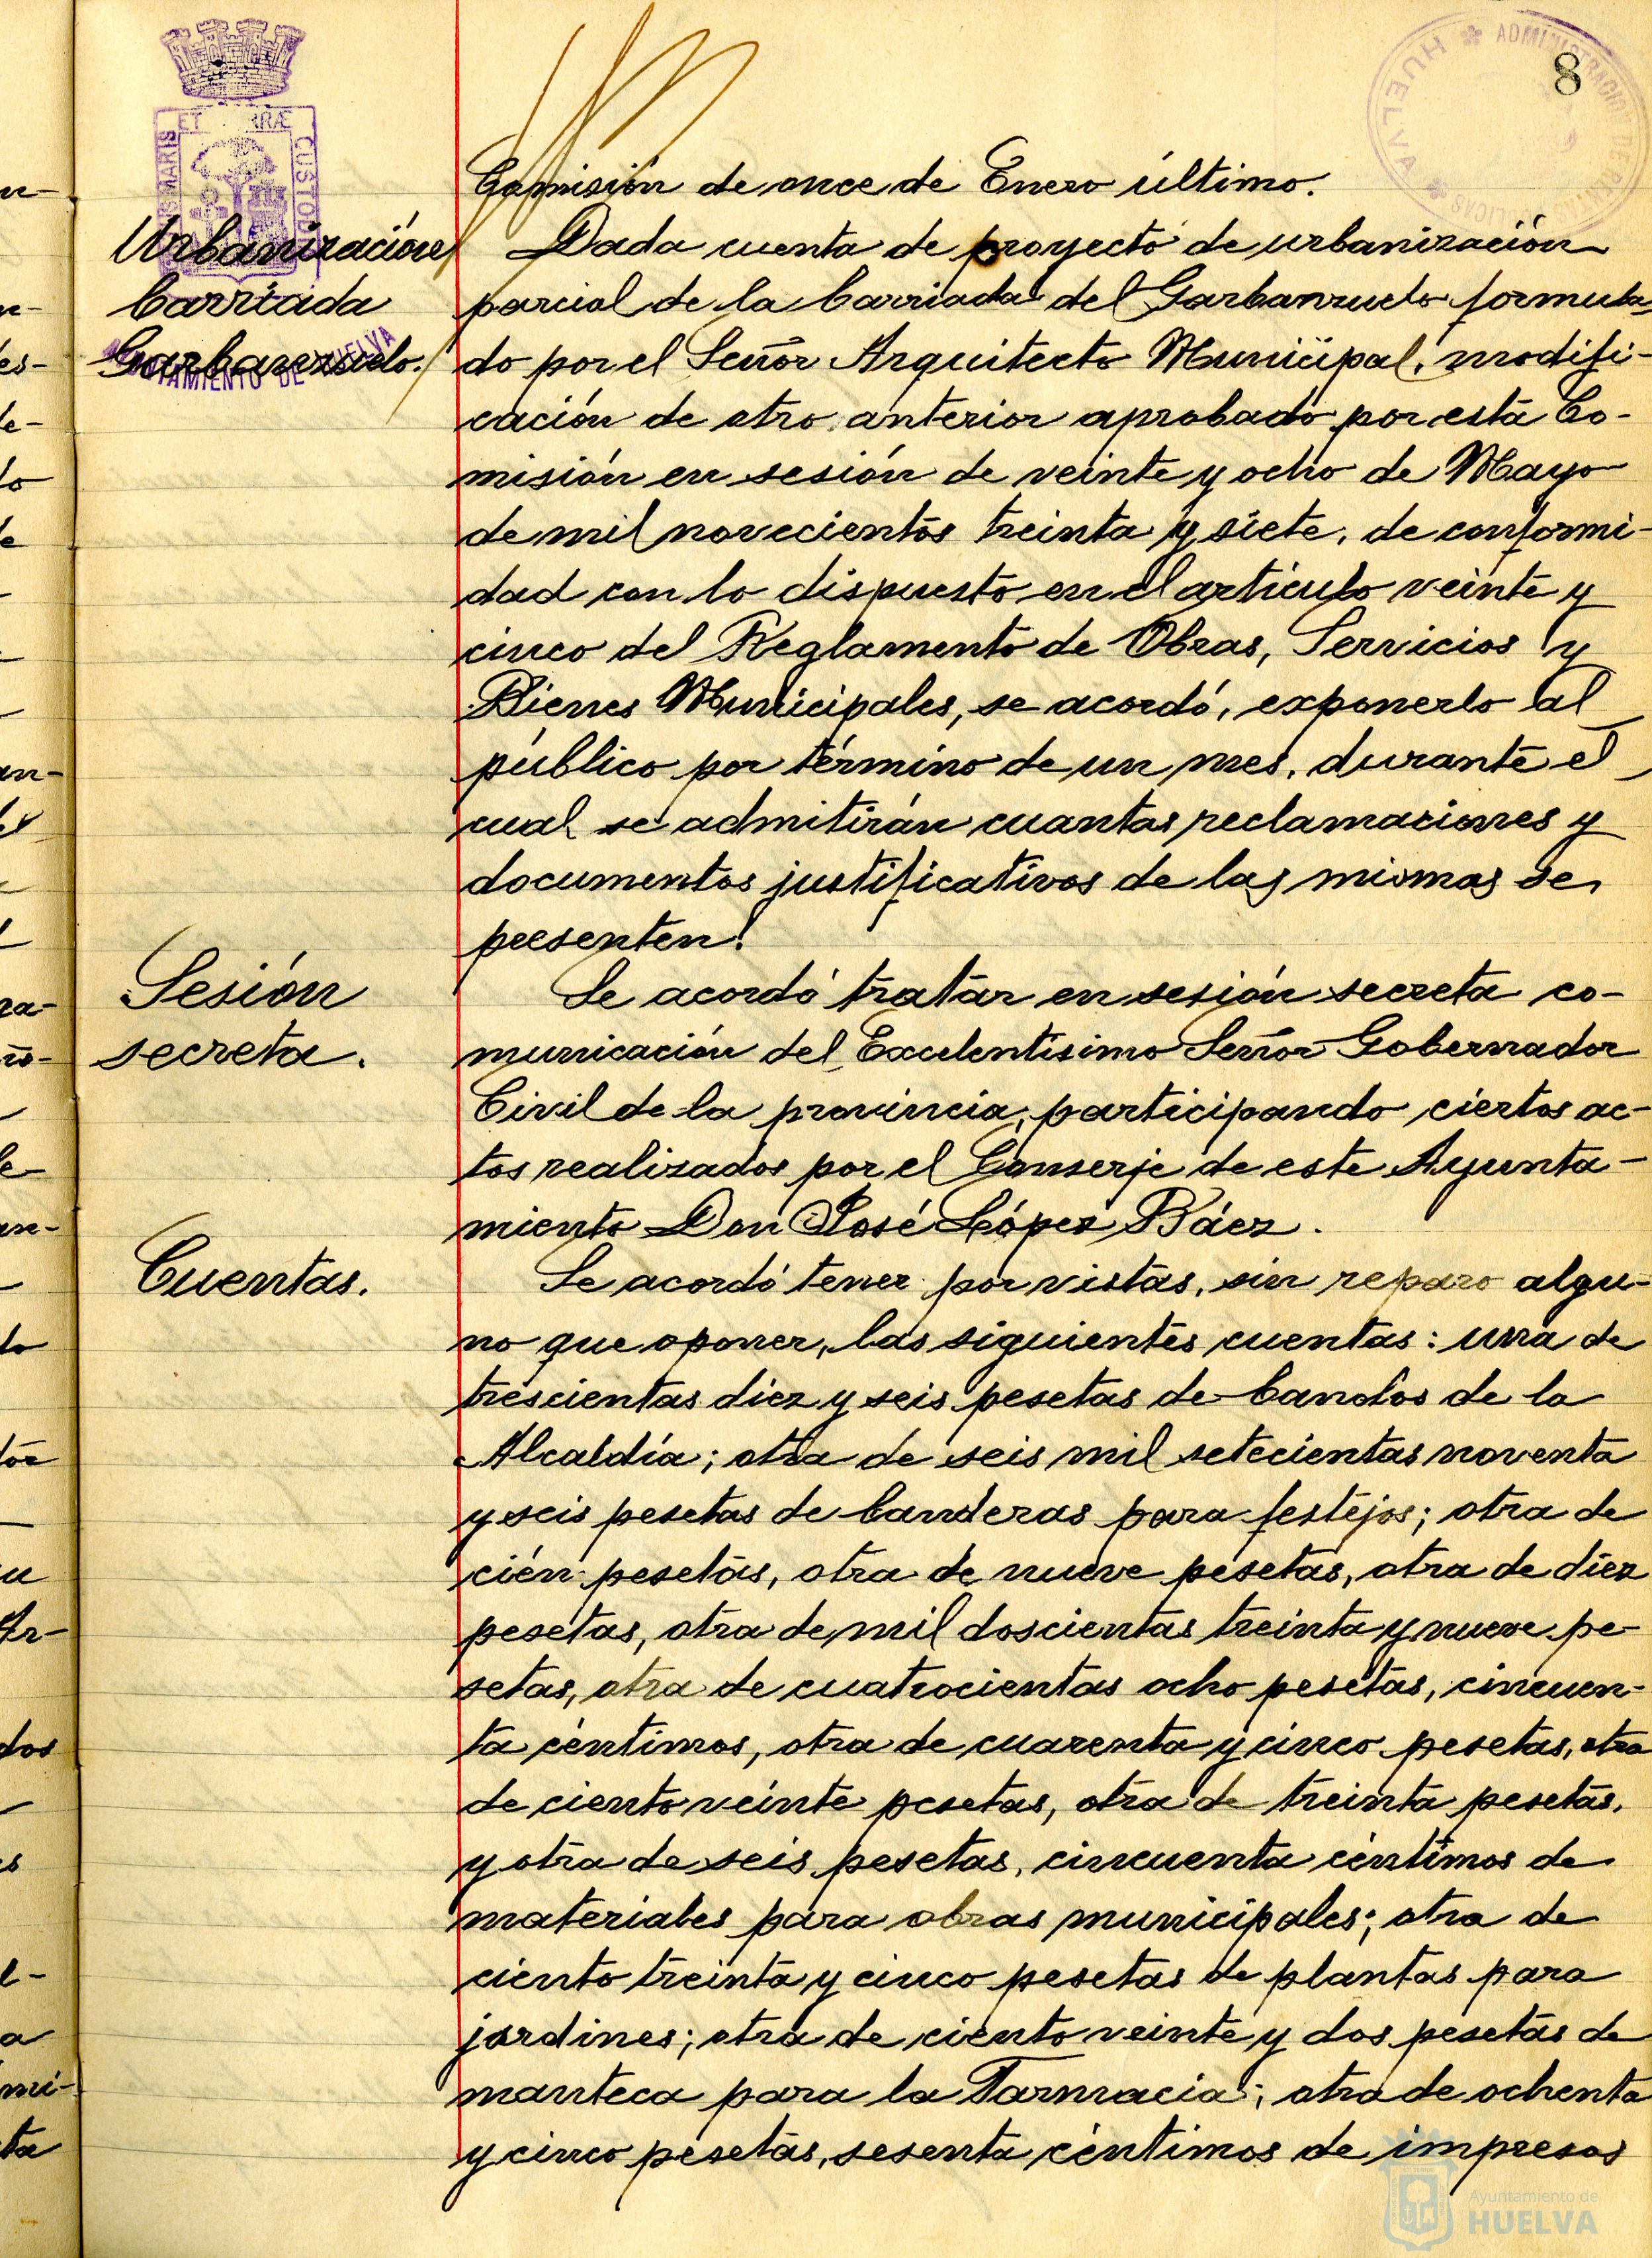 8
Comisión de once de Enero último.
Urbanización
barriada
Garbanzuelo.
Dada cuenta de proyecto de urbanización
parcial de la barriada del Garbanzuelo formula-
do por el Señor Arquitecto Municipal, modifi-
cación de otro anterior aprobado por esta Co-
misión en sesión de veinte y ocho de Mayo
de mil novecientos treinta y siete, de conformi-
dad con lo dispuesto en el artículo veinte y
cinco del Reglamento de Obras, Servicios y
Bienes Municipales, se acordó, exponerlo al
público por término de un mes, durante el
cual se admitirán cuantas reclamaciones y
documentos justificativos de las mismas se
presenten.
Sesión
secreta.
Se acordó tratar en sesión secreta co-
municación del Excelentísimo Señor Gobernador
Civil de la provincia, participando ciertos ac-
tos realizados por el Conserje de este Ayunta-
miento Don José López Báez.
Cuentas.
Se acordó tener por vistas, sin reparo algu-
no que oponer, las siguientes cuentas: una de
trescientas diez y seis pesetas de bandos de la
Alcaldía; otra de seis mil setecientas noventa
y seis pesetas de banderas para festejos; otra de
cien pesetas, otra de nueve pesetas, otra de diez
pesetas, otra de mil doscientas treinta y nueve pe-
setas, otra de cuatrocientas ocho pesetas, cincuen-
ta céntimos, otra de cuarenta y cinco pesetas, otra
de ciento veinte pesetas, otra de treinta pesetas,
y otra de seis pesetas, cincuenta céntimos de
materiales para obras municipales; otra de
ciento treinta y cinco pesetas de plantas para
jardines; otra de ciento veinte y dos pesetas de
manteca para la Farmacia; otra de ochenta
y cinco pesetas, sesenta céntimos de impresos
Ayuntamiento de
HUELVA